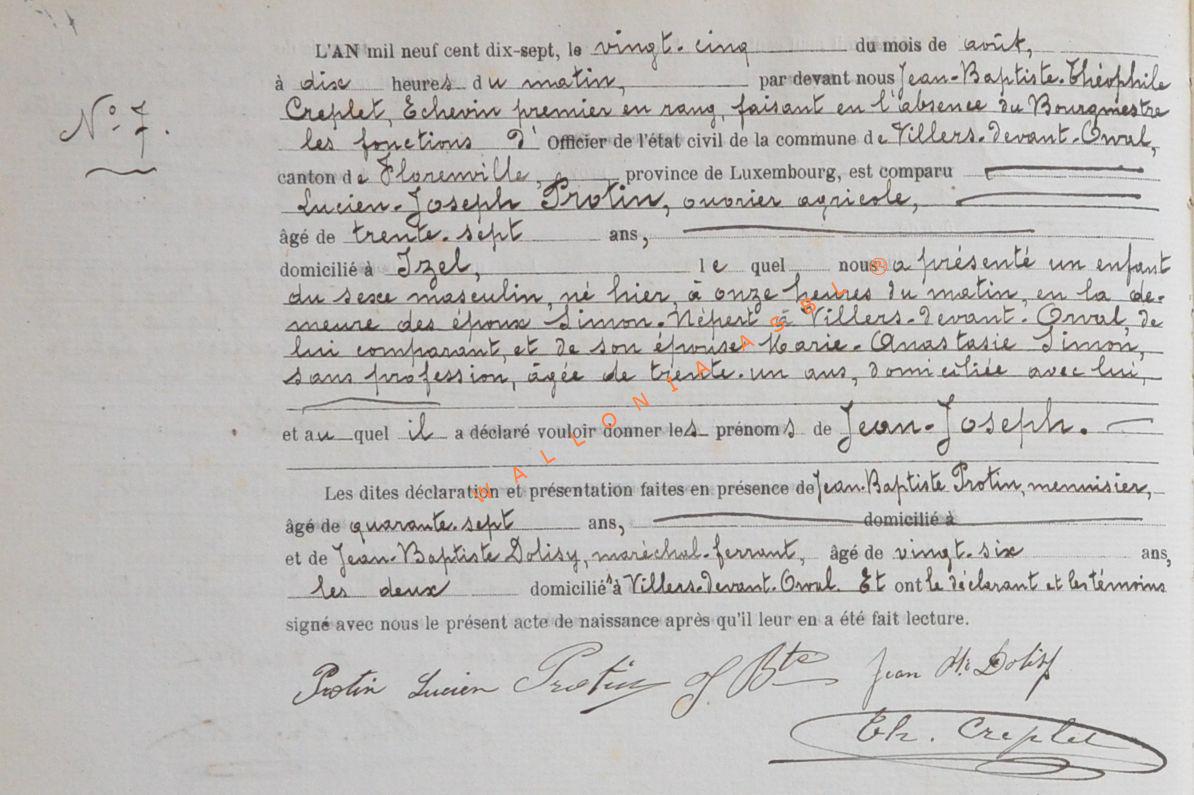 L'AN mil neuf cent dix-sept, le vingt-cinq du mois de août,
à dix heures du matin, par devant nous Jean-Baptiste-Théophile
N° 7. Creplet, Echevin premier en rang, faisant en l'absence du Bourgmestre
les fonctions d' Officier de l'état civil de la commune de Villers-devant-Orval,
canton de Florenville, province de Luxembourg, est comparu
Lucien-Joseph Protin, ouvrier agricole,
âgé de trente-sept ans,
domicilié à Izel, le quel nous a présenté un enfant
du sexe masculin, né hier, à onze heures du matin, en la de-
meure des époux Simon-Népert à Villers-devant-Orval, de
lui comparant et de son épouse Marie-Anastasie Simon,
sans profession, âgée de trente-un ans, domiciliée avec lui,
et au quel il a déclaré vouloir donner les prénoms de Jean-Joseph.
Les dites déclaration et présentation faites en présence de Jean-Baptiste Protin, mennisier,
âgé de quarante-sept ans, domicilié à
et de Jean-Baptiste Dolisy, maréchal-ferrant, âgé de vingt-six ans,
les deux domiciliés à Villers-devant-Orval. Et ont le déclarant et les témoins
signé avec nous le présent acte de naissance après qu'il leur en a été fait lecture.
Protin Lucien Protin J Bte Jean Bte Dolisy
Th. Creplet
WALLONIA ASBL